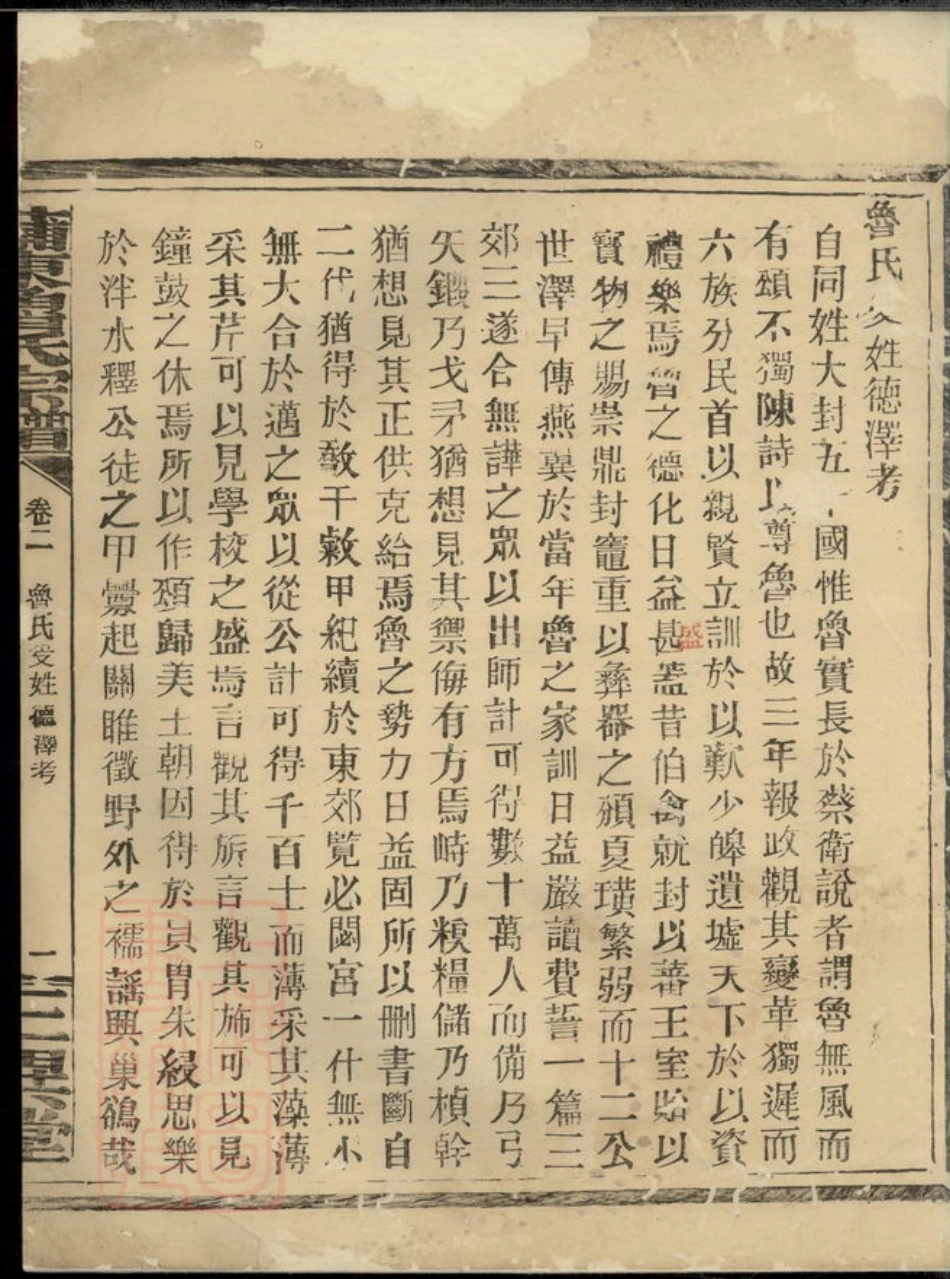 魯氏受姓德澤考
自同姓大封五十國惟魯實長於蔡衛說者謂魯無風而
有頌不獨陳詩以尊魯也故三年報政觀其變革獨遲而
六族分民首以親賢立訓於以歎少皞遺墟天下於以資
禮樂焉魯之德化日益甚蓋昔伯禽就封以蕃王室貽以
盛
寶物之賜崇鼎封竈重以彝器之頒夏璜繁弱而十二公
世澤早傳燕翼於當年魯之家訓日益嚴讀費誓一篇三
郊三遂合無譁之眾以出師計可得數十萬人而備乃弓
矢鍛乃戈矛猶想見其禦侮有方焉峙乃糗糧儲乃楨幹
猶想見其正供克給焉魯之勢力日益固所以刪書斷自
二代猶得於敿干敹甲紀續於東郊覽必閟宮一什無小
無大合於邁之眾以從公計可得千百士而薄采其藻薄
采其芹可以見學校之盛焉言觀其旂言觀其斾可以見
鐘鼓之休焉所以作頌歸美士朝因得於貝冑朱綅思樂
於泮水釋公徒之甲釁起關雎徵野外之襦謠興巢鵒哉
蒲東魯氏宗譜
卷二
魯氏受姓德澤考
一